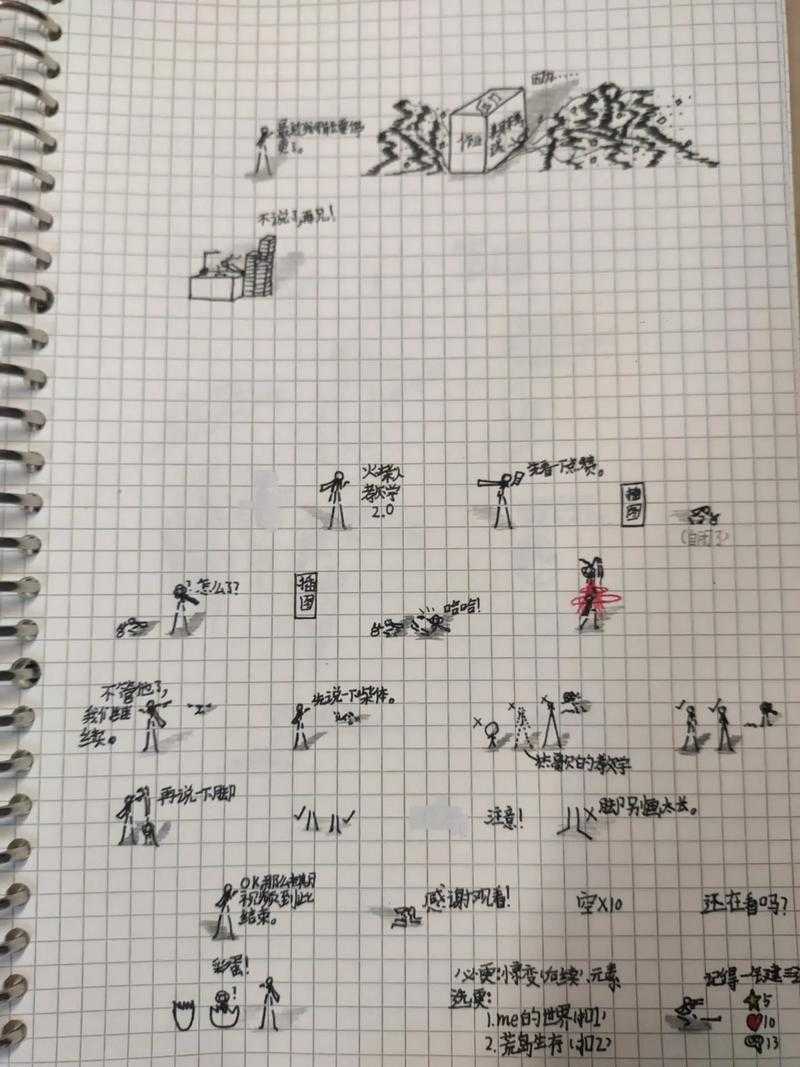 因为……
更了。
作业
不说了,再见!
火柴人
教学
2.0
先看一下点赞。
插
图
(自闭了)
怎么了?
插
图
哈哈!
不管他了,
我们继
续。
先说一下柴体。
的教学
再说一下脚
注意!
脚别画太长。
OK那么本期
视频到此
结束。
感谢观看!
空X10
还在看吗?
彩蛋!
必更:惊变(后续)、元素
选更:
1.me的世界(扣1)
2.荒岛生存(扣2)
记得一键三
5
10
13